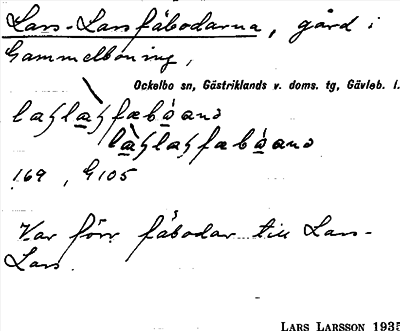 Lars-Larsfäbodarna, gård i
Gammelboning,
Ockelbo sn, Gästriklands v. doms. tg, Gävleb. l.
169, G105
Var förr fäbodar till Lars-
Lars.
LARS LARSSON 1935